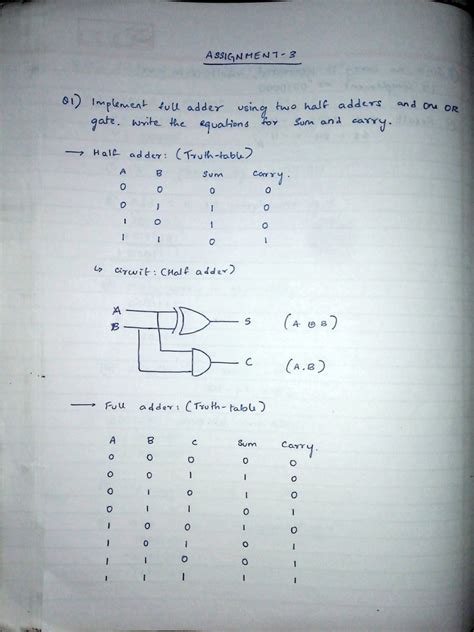 ASSIGNMENT-3
Q1) Implement full adder using two half adders and one OR
gate. Write the equations for sum and carry.
→ Half adder: (Truth-table)
A B Sum Carry.
0 0 0 0
0 1 1 0
1 0 1 0
1 1 0 1
↳ circuit: (Half adder)
A
B S (A ⊕ B)
C (A.B)
→ Full adder: (Truth-table)
A B C Sum Carry.
0 0 0 0 0
0 0 1 1 0
0 1 0 1 0
0 1 1 0 1
1 0 0 1 0
1 0 1 0 1
1 1 0 0 1
1 1 1 1 1